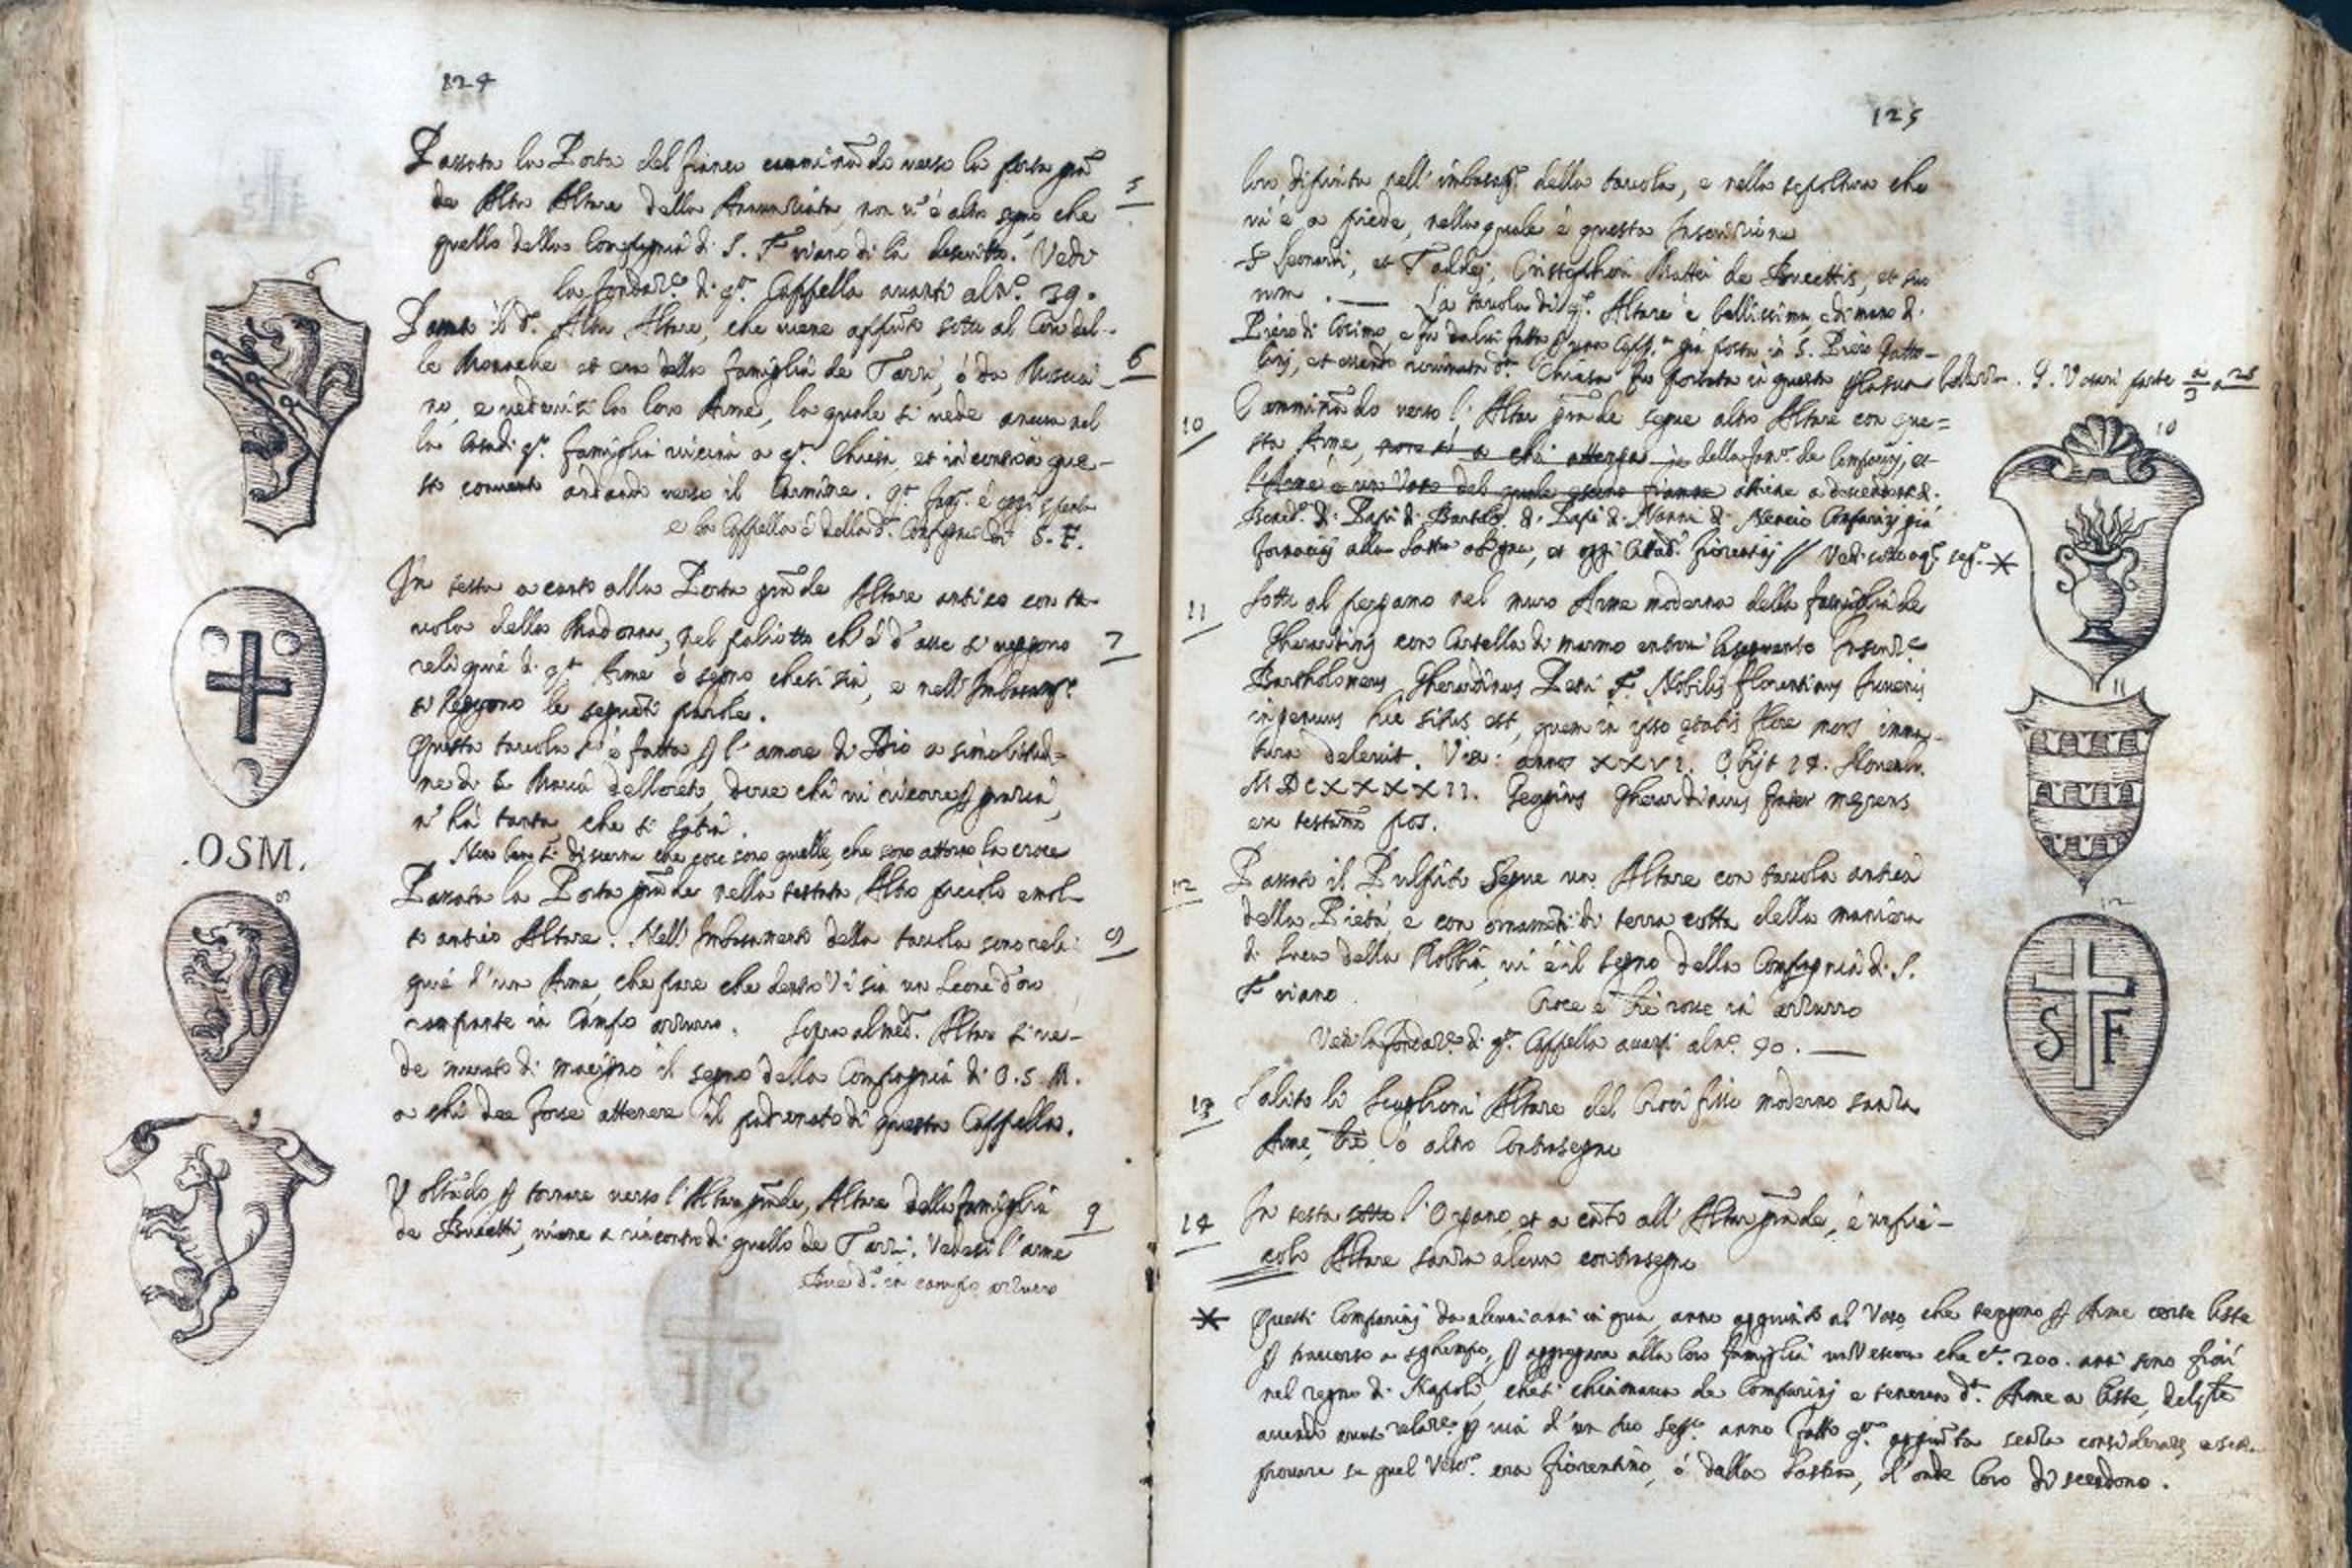 124
Passata la Porta del fianco camminãdo verso la porta grã
de Altro Altare della Annunziata, non v'è altro segno che
quello della Compagnia di S. Friano di là descritto. Vedi
la fondaz.e di q.ta Cappella avanti al n.o 39.
5
il d.o Altro Altare, che viene appũto sotto al Coro del-
le Monache et era della famiglia de Tarri, ò da Ruscia-
no, e vedevisi la loro Arme, la quale si vede ancora nel
la Casa di q.ta famiglia vicina a q.ta Chiesa, et in
sto convento andando verso il Carmine. q.ta fam. è oggi spenta
e la Cappella è della d.a Compagnia di S. F.
6
In testa a canto alla Porta grãde Altare antico con ta-
vola della Madonna, nel paliotto ch'è d'asse si veggono
reliquie di q.ta Arme ò segno che si sia, e nell'Imbasam.to
si leggono le seguẽti parole.
7
Questa tavola s'è fatta p l'amore di Dio a similitud=
ne di S. Maria dell oreto, dove chi vi ricorre p grazia,
n'hà tanta, che si sazia.
Non ben si discerne che cose sono quelle, che sono attorno la croce
Passata la Porta grãde nella testata Altro piccolo e mol-
to antico Altare. Nell'Imbasamento della tavola sono reli-
quie d'un Arme, che pare che dentro vi sia un Leone d'oro
rampante in Campo azzurro. Sopra al med.o Altare si ve-
de murato di macigno il segno della Compagnia di O. S. M.
a chi dee forse attenere il padronato di questa Cappella.
Voltãdo p tornare verso l'Altar grãde, Altare della famiglia
de Bucetti, viene a rincontro di quello de Tarri. Vedesi l'arme
9
Bue d.o in campo azzurro
6
.OSM.
8
9
125
loro dipinta nell'imbasam.to della tavola, e nella sepoltura che
vi è a piede, nella quale è questa Inscrizione
S Leonardi, et Taddei, Cristophori Mattei de Bucettis, et suo
rum. La tavola di q.to Altare è bellissima, di mano di
Piero di Cosimo, e fu da lui fatta p una Capp.a già posta in S. Piero Gatto-
lini, et essendo rovinata d.a Chiesa fu portata in questa
10 Camminãdo verso l'Altar grãde segue altro Altare con que=
sta Arme, non si a chi attenga è della fam.a de Comparini, et
l'Arme è un Vaso del quale escono fiamme attiene a descendenti di
Bened.o di Papi di Bartolo di Papi di Nanni di Nencio Comparini già
fornaciai alla Lastra a Signa, et oggi Cittad.i fiorentini // Vedi sotto a q.to seg.o *
11 Sotto al pergamo nel muro Arme moderna della famiglia de
Gherardini con Cartella di marmo entrovi la seguente Inscriz.e
Bartholomeus Gherardinus Petri F. Nobilis florentinus Iuvenis
ingenuus hic situs est, quem in ipso ętatis flore mors imma-
tura delevit. Vix: annos XXVI. Obijt 14. Novemb.
MDCXXXXII. Gherardinus frater męrens
ex testam.o pos.
12 Passato il Pulpito segue un Altare con tavola antica
della Pietà, e con ornamẽti di terra cotta della maniera
di Luca della Robbia, vi è il segno della Compagnia di S.
Friano. Croce e lr̃e rosse in azzurro
Vedi la fondaz.e di q.ta Cappella avanti al n.o 90.
13 Salito li Scaglioni Altare del Crocifisso moderno sanza
Arme, lr̃e, ò altro Contrasegno
14 In testa sotto l'Organo, et a cãto all'Altar grãde, è un pic-
colo Altare sanza alcun contrasegno
* Questi Comparini da alcuni anni in qua, anno aggiunto al Vaso, che tengono p Arme certe liste
p traverso a sghembo, p aggregare alla loro famiglia un Vescovo che c.a 200. anni sono fiorì
nel regno di Napoli, che si chiamava de Comparini e teneva d.a Arme a liste, del che
avendo avuto relaz.e p via d'un suo seg.o anno fatto q.ta aggiũta senza considerare,
provare se quel Vesc.o era fiorentino, ò dalla Lastra, d'onde loro discendono.
10
11
12
S F